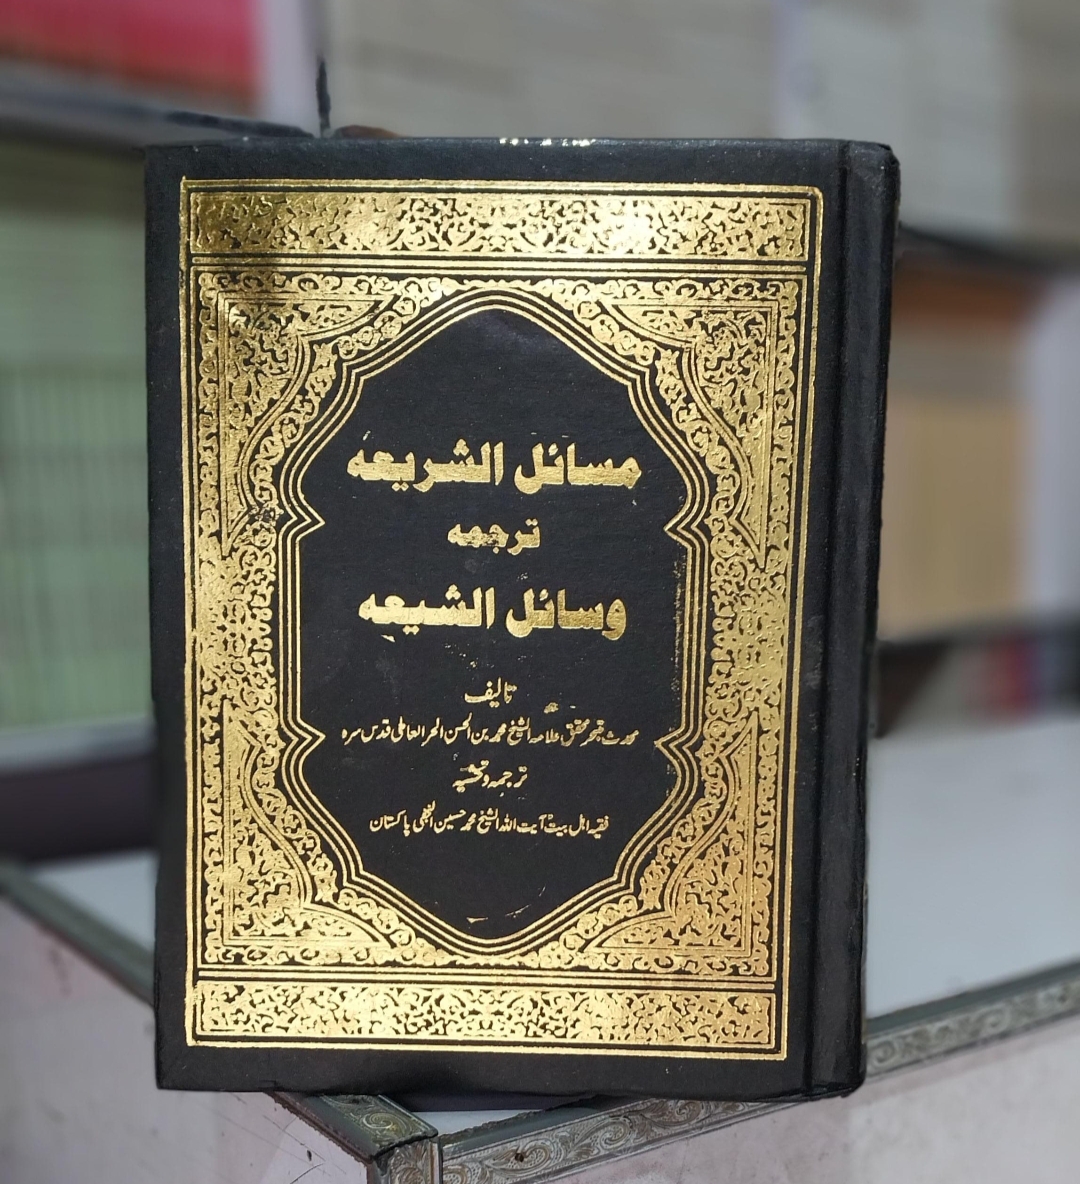 مسائل الشریعہ
ترجمہ
وسائل الشیعہ
تالیف
محدث متبحر محقق علامہ الشیخ محمد بن الحسن الحر العاملی قدس سرہ
ترجمہ و تحشیہ
فقیہ اہل بیتؑ آیت اللہ الشیخ محمد حسین النجفی پاکستان